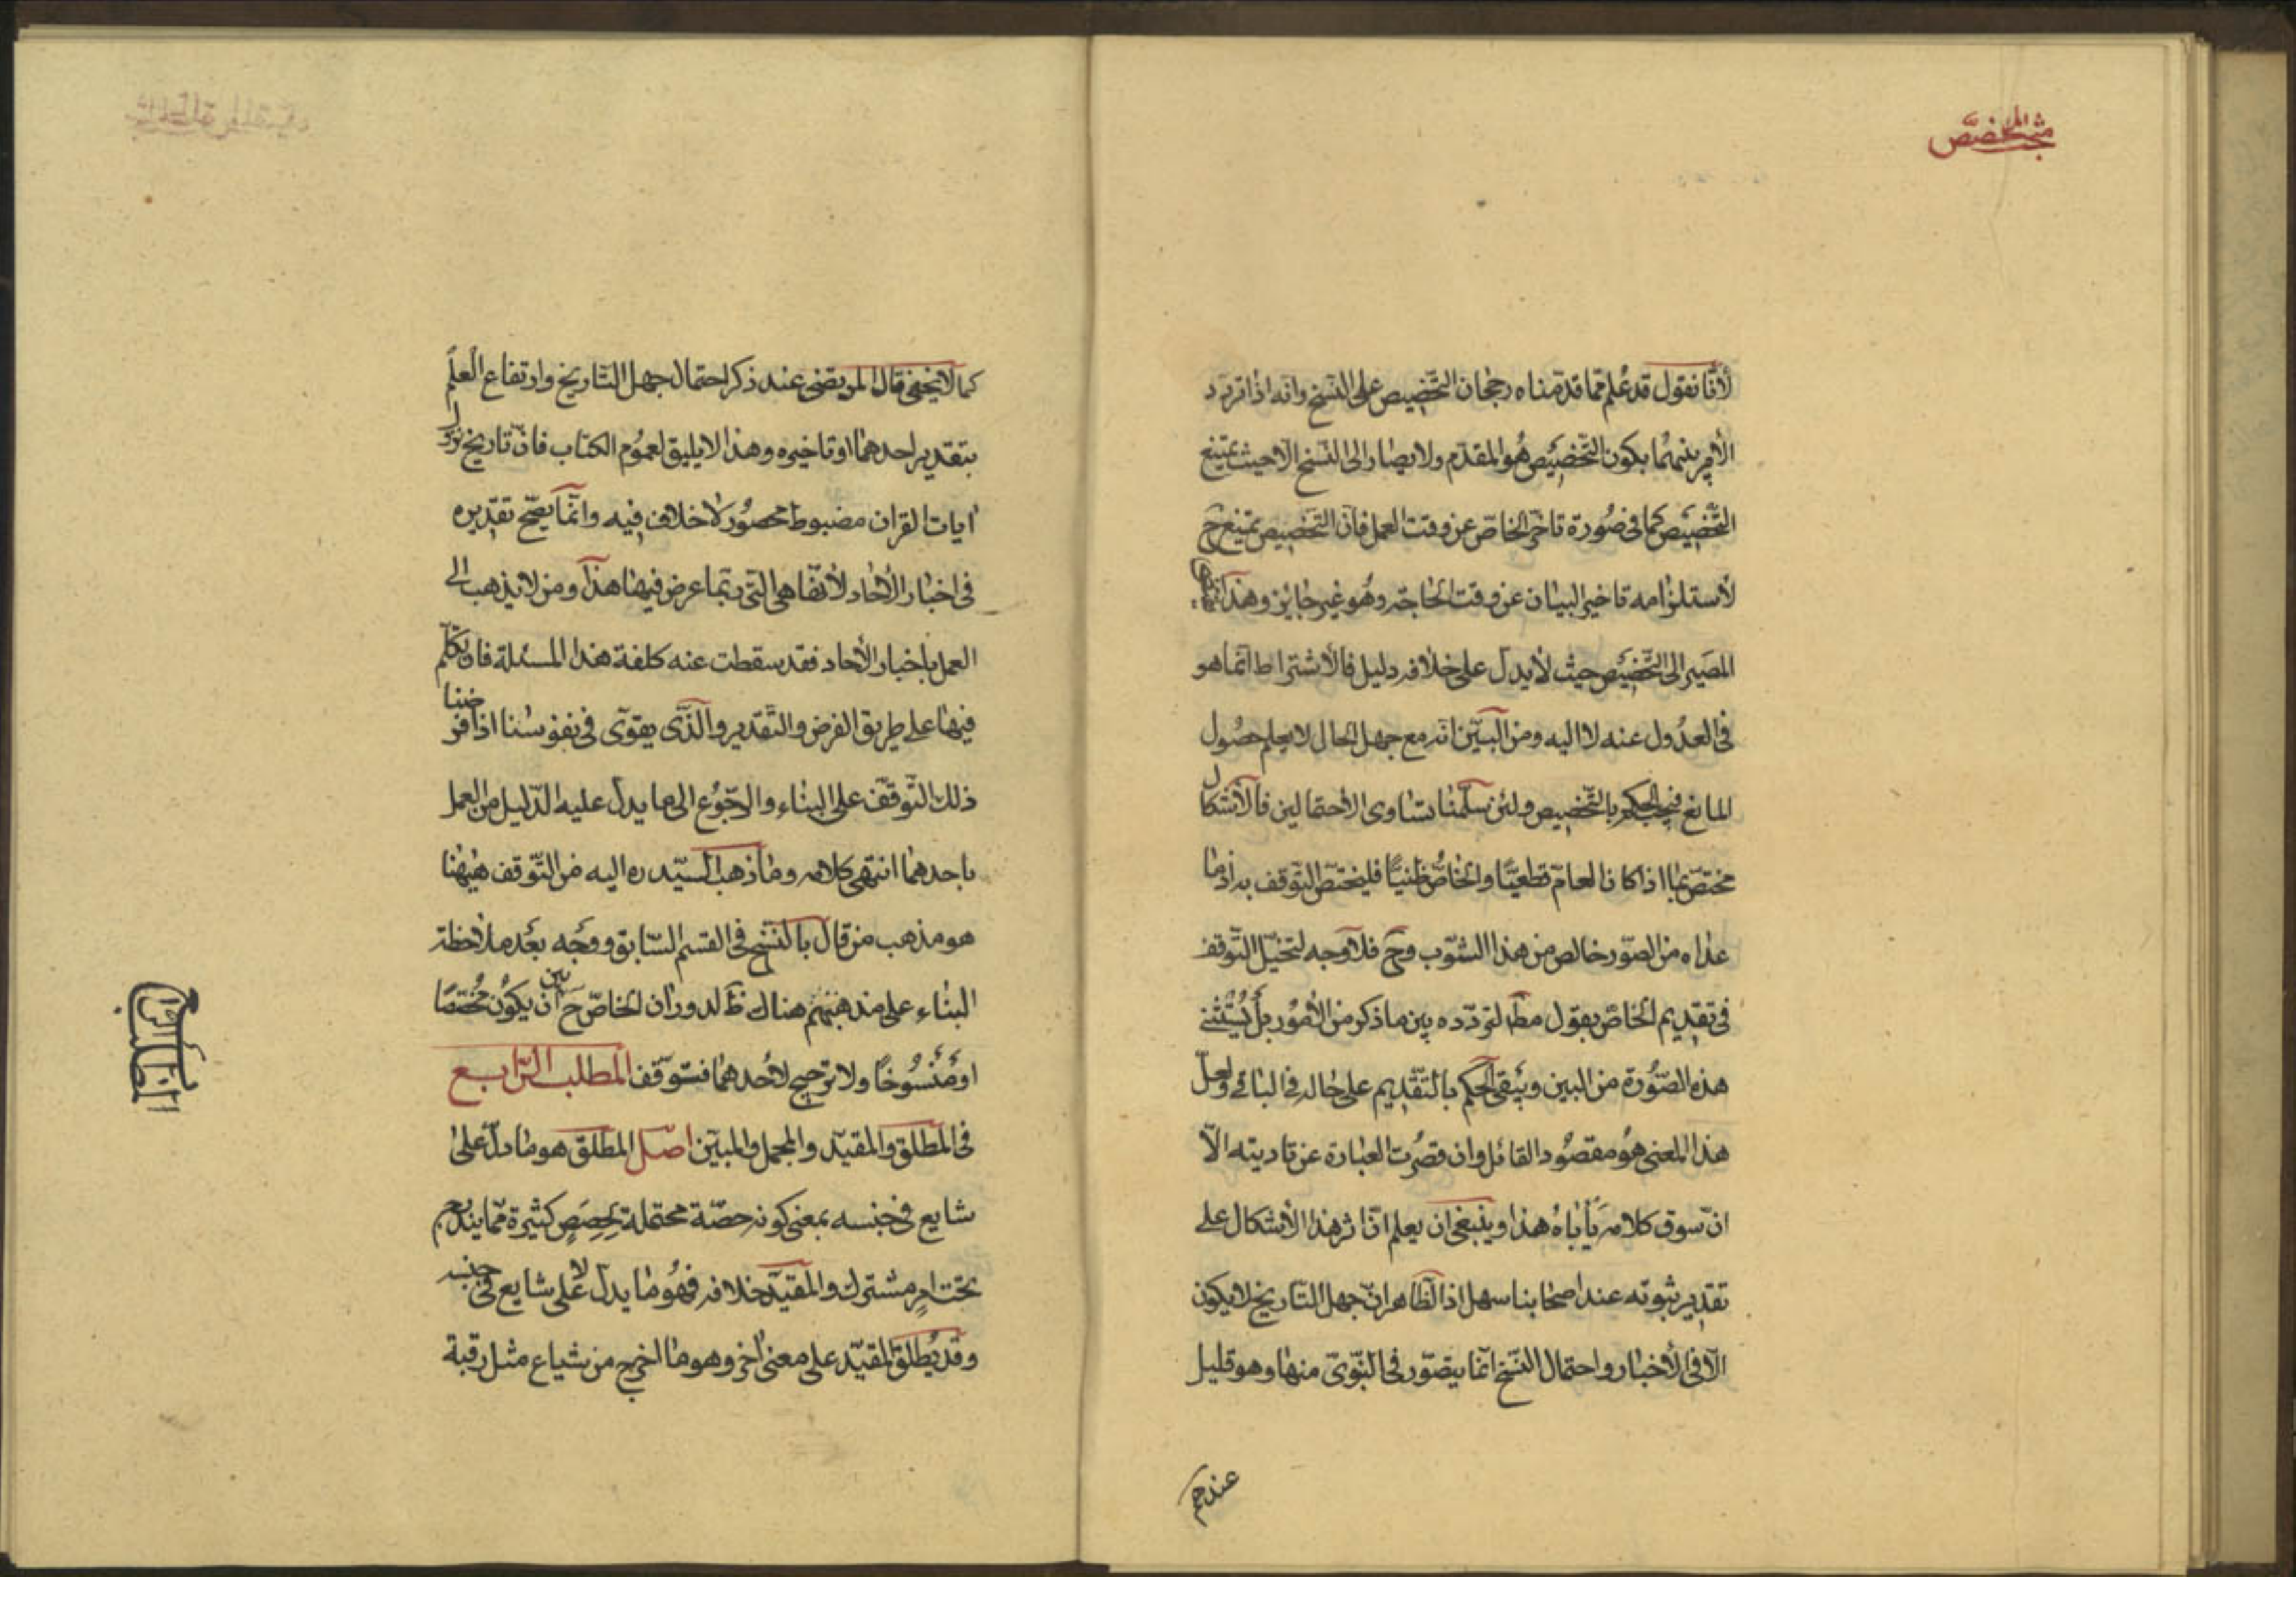 مبحث المخصص
لأنا نقول قد علم مما قدمناه رجحان التخصيص على النسخ وانه اذا تردد
الأمر بينهما يكون التخصيص هو المقدم ولا يصار الى النسخ الا حيث يمتنع
التخصيص كما فى صورة تاخر الخاص عن وقت العمل فان التخصيص يمتنع ح
لأستلزامه تاخير البيان عن وقت الحاجة وهو غير جايز وهذا
المصير الى التخصيص حيث لا يدل على خلافه دليل فالاشتراط انما هو
فى العدول عنه لا اليه ومن البين انه مع جهل الحال لا يعلم حصول
المانع فيجب الحكم بالتخصيص ولئن سلمنا تساوى الأحتمالين فالأشكال
مختص بما اذا كان العام قطعيا والخاص ظنيا فليختص التوقف به اذ ما
عداه من الصور خالص من هذا الشوب وح فلا وجه لتخيل التوقف
فى تقديم الخاص بقول مط لتردده بين ما ذكر من الأمور بل يستثنى
هذه الصورة من البين ويبقى الحكم بالتقديم على حاله فى الباقى ولعل
هذا المعنى هو مقصود القائل وان قصرت العبارة عن تاديته الا
ان سوق كلامه يأباه هذا وينبغى ان يعلم ان اثر هذا الأشكال على
تقدير ثبوته عند اصحابنا سهل اذ الظاهر ان جهل التاريخ لا يكون
الا فى الأخبار واحتمال النسخ انما يتصور فى النبوى منها وهو قليل
عندهم
كما لا يخفى قال المرتضى عند ذكر احتمال جهل التاريخ وارتفاع العلم
بتقدير احدهما او تاخيره وهذا لا يليق لعموم الكتاب فان تاريخ نزول
ايات القران مضبوط محصور لا خلاف فيه وانما يصح تقديره
فى اخبار الأحاد لأنها هى التى ربما عرض فيها هذا ومن لا يذهب الى
العمل باخبار الأحاد فقد سقطت عنه كلفة هذا المسئلة فان تكلم
فيها على طريق الفرض والتقدير والذى يقوى فى نفوسنا اذا فرضنا
ذلك التوقف على البناء والرجوع الى ما يدل عليه الدليل من العمل
باحدهما انتهى كلامه وما ذهب السيد ره اليه من التوقف هيهنا
هو مذهب من قال بالنسخ فى القسم السابق ووجه بعد ملاحظة
البناء على مذهبهم هناك ظ لدوران الخاص ح بين أن يكون مخصصا
او منسوخا ولا ترجيح لأحدهما فنتوقف المطلب الرابع
فى المطلق والمقيد والمجمل والمبين اصل المطلق هو ما دل على
شايع فى جنسه بمعنى كونه حصة محتملة لحصص كثيرة مما يندرج
تحت امر مشترك والمقيد خلافه فهو ما يدل لا على شايع فى جنسه
وقد يطلق المقيد على معنى اخر وهو ما اخرج من شياع مثل رقبة
المطلب الرابع